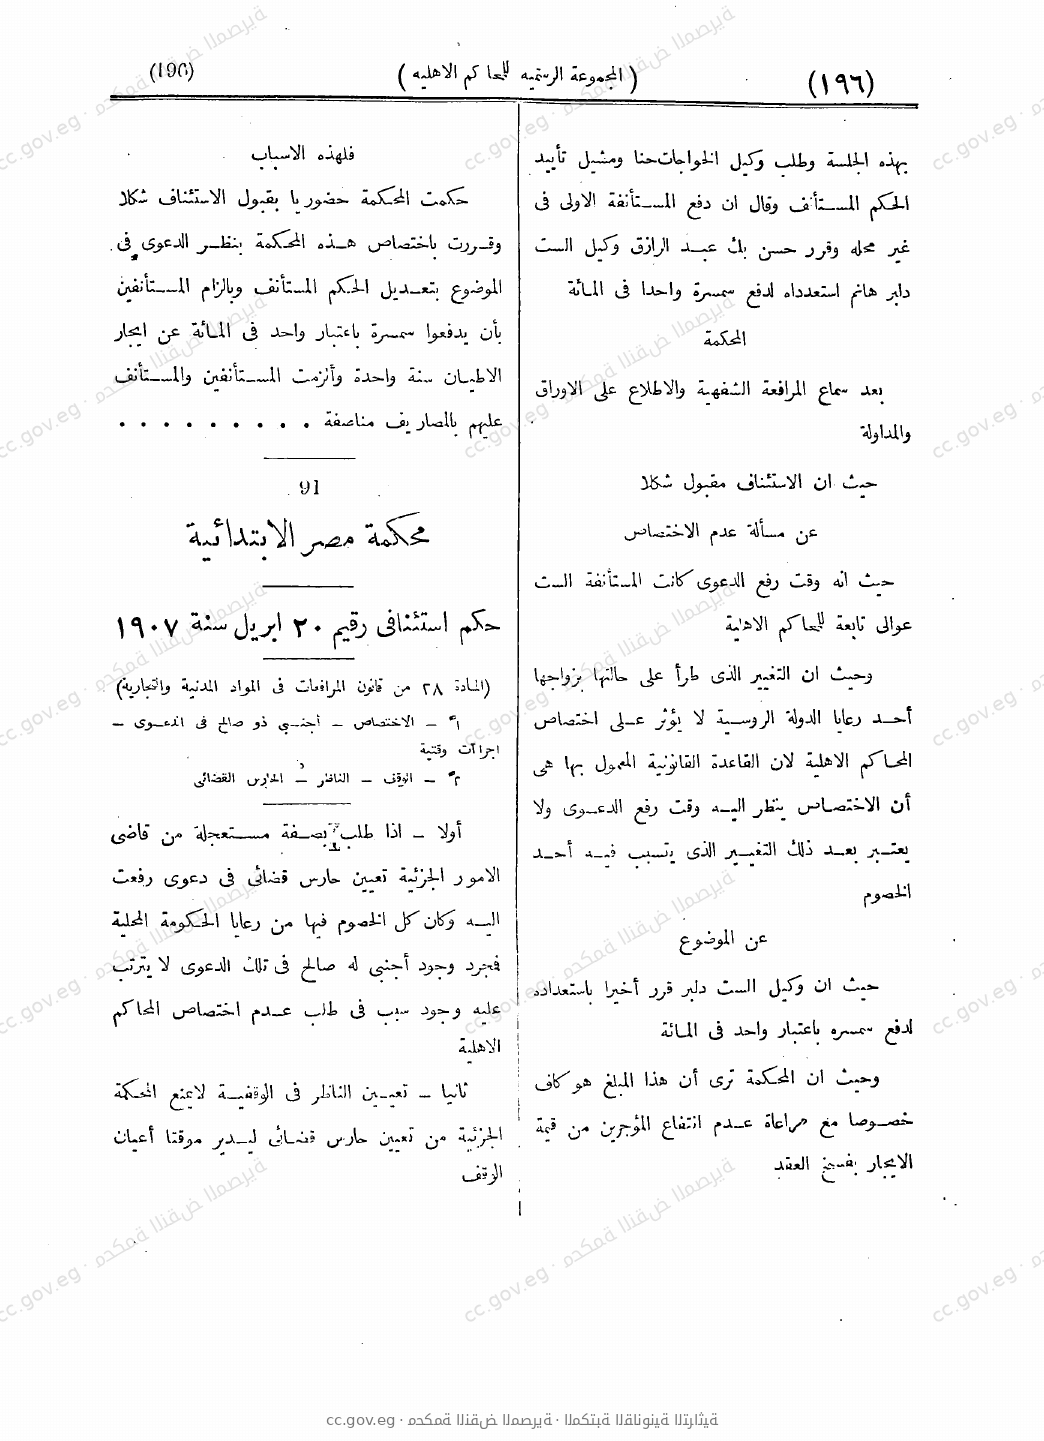 (١٩٦)
( المجموعة الرسميه للمحاكم الاهليه )
(196)
بهذه الجلسة وطلب وكيل الخواجات حنا ومشيل تأييد
الحكم المستأنف وقال ان دفع المستأنفة الاولى فى
غير محله وقرر حسن بك عبد الرازق وكيل الست
دلبر هانم استعدداه لدفع سمسرة واحدا فى المائة
المحكمة
بعد سماع المرافعة الشفهية والاطلاع على الاوراق
والمداولة
حيث ان الاستئناف مقبول شكلا
عن مسألة عدم الاختصاص
حيث انه وقت رفع الدعوى كانت المستأنفة الست
عوالى تابعة للمحاكم الاهلية
وحيث ان التغيير الذى طرأ على حالتها بزواجها
أحد رعايا الدولة الروسية لا يؤثر على اختصاص
المحاكم الاهلية لان القاعدة القانونية المعمول بها هى
أن الاختصاص ينظر اليه وقت رفع الدعوى ولا
يعتبر بعد ذلك التغيير الذى يتسبب فيه أحد
الخصوم
عن الموضوع
حيث ان وكيل الست دلبر قرر أخيرا باستعداده
لدفع سمسره باعتبار واحد فى المائة
وحيث ان المحكمة ترى أن هذا المبلغ هو كاف
خصوصا مع مراعاة عدم انتفاع المؤجرين من قيمة
الايجار بفسخ العقد
فلهذه الاسباب
حكمت المحكمة حضوريا بقبول الاستئناف شكلا
وقررت باختصاص هذه المحكمة بنظر الدعوى وفى
الموضوع بتعديل الحكم المستأنف وبالزام المستأنفين
بأن يدفعوا سمسرة باعتبار واحد فى المائة عن ايجار
الاطيان سنة واحدة وألزمت المستأنفين والمستأنف
عليهم بالمصاريف مناصفة . . . . . . . . .
91
محكمة مصر الابتدائية
حكم استئنافى رقيم ٢٠ ابريل سنة ١٩٠٧
(المادة ٢٨ من قانون المرافعات فى المواد المدنية والتجارية)
١ً – الاختصاص – أجنبى ذو صالح فى الدعوى –
اجراآت وقتية
٢ً – الوقف – الناظر – الحارس القضائى
أولا – اذا طلب بصفة مستعجلة من قاضى
الامور الجزئية تعيين حارس قضائى فى دعوى رفعت
اليه وكان كل الخصوم فيها من رعايا الحكومة المحلية
فمجرد وجود أجنبى له صالح فى تلك الدعوى لا يترتب
عليه وجود سبب فى طلب عدم اختصاص المحاكم
الاهلية
ثانيا – تعيين الناظر فى الوقفية لا يمنع المحكمة
الجزئية من تعيين حارس قضائى ليدير موقتا أعيان
الوقف
cc.gov.eg · محكمة النقض المصرية · المكتبة القانونية التراثية